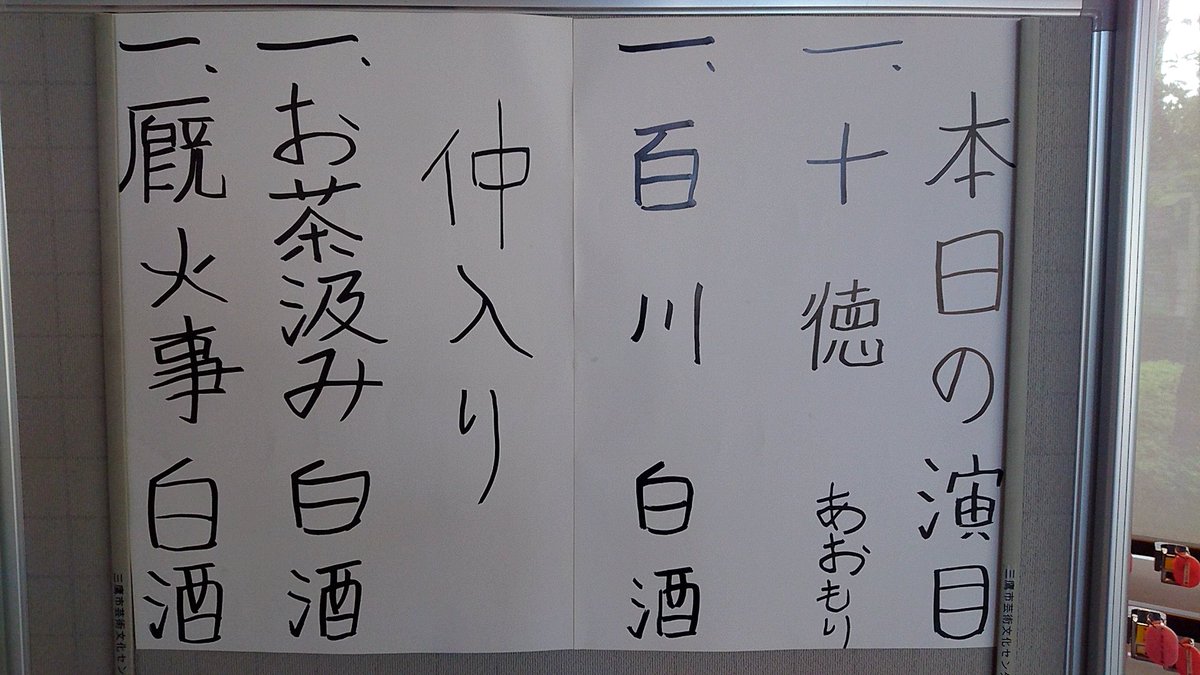 本日の演目
一、十徳 あおもり
一、百川 白酒
仲入り
一、お茶汲み 白酒
一、厩火事 白酒
三鷹市芸術文化セン
三鷹市芸術文化セン